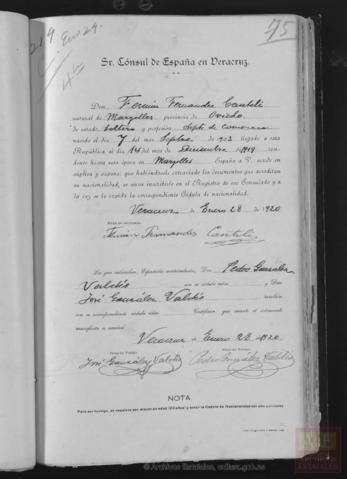 219 Eno 29.
75
Sr. Cónsul de España en Veracruz.
Don Fermin Fernandez Canteli
natural de Margolles provincia de Oviedo
de estado soltero y profesión Depte de comercio
nacido el día 7 del mes Septbre de 1903 llegado a esta
República el día del mes de Diciembre 1919 resi-
dente hasta esta época en Margolles España a V. acude en
súplica y expone: que habiéndosele extraviado los documentos que acreditan
su nacionalidad, se sirva inscribirle en el Registro de ese Consulado y a
la vez se le expida la correspondiente Cédula de nacionalidad.
Veracruz a Enero 28 de 1920
Fermin Fernandez Canteli
Los que subscriben, Españoles matriculados, Don Pedro Gonzalez
Valdés con su cédula núm. y Don
José González Valdés también
con su correspondiente cédula núm. Certifican: que consta el extremo
manifiesto se necesita
Veracruz a Enero 28 1920
Firma del Testigo Firma del Testigo
José González Valdés Pedro González Valdés
NOTA
Para ser testigo, se requiere ser mayor de edad (23 años) y tener la Cédula de Nacionalidad del año corriente
© Archivos Estatales, cultura.gob.es